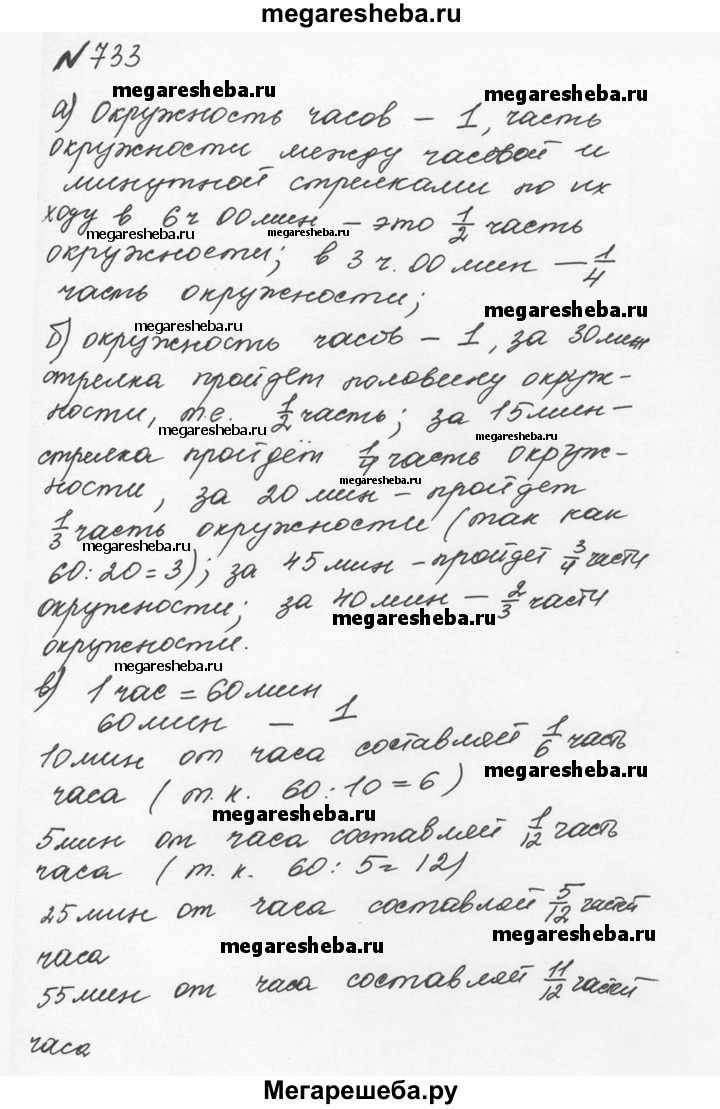 megaresheba.ru
№ 733
megaresheba.ru megaresheba.ru
а) Окружность часов – 1, часть
окружности между часовой и
megaresheba.ru megaresheba.ru
минутной стрелками по их
ходу в 6 ч 00 мин – это 1/2 часть
megaresheba.ru megaresheba.ru
окружности; в 3 ч. 00 мин — 1/4
часть окружности;
megaresheba.ru
megaresheba.ru
б) окружность часов – 1, за 30 мин
стрелка пройдет половину окруж-
ности, т.е. 1/2 часть; за 15 мин –
megaresheba.ru megaresheba.ru
стрелка пройдёт 1/4 часть окруж-
megaresheba.ru
ности, за 20 мин – пройдет
1/3 часть окружности (так как
megaresheba.ru
60:20=3); за 45 мин – пройдет 3/4 части
окружности; за 40 мин – 2/3 части
megaresheba.ru
окружности.
megaresheba.ru
в) 1 час = 60 мин
60 мин – 1
10 мин от часа составляет 1/6 часть
megaresheba.ru
часа ( т. к. 60:10=6 )
megaresheba.ru
5 мин от часа составляет 1/12 часть
часа ( т. к. 60:5=12)
25 мин от часа составляет 5/12 частей
megaresheba.ru megaresheba.ru
часа
55 мин от часа составляет 11/12 частей
часа
Мегарешеба.ру